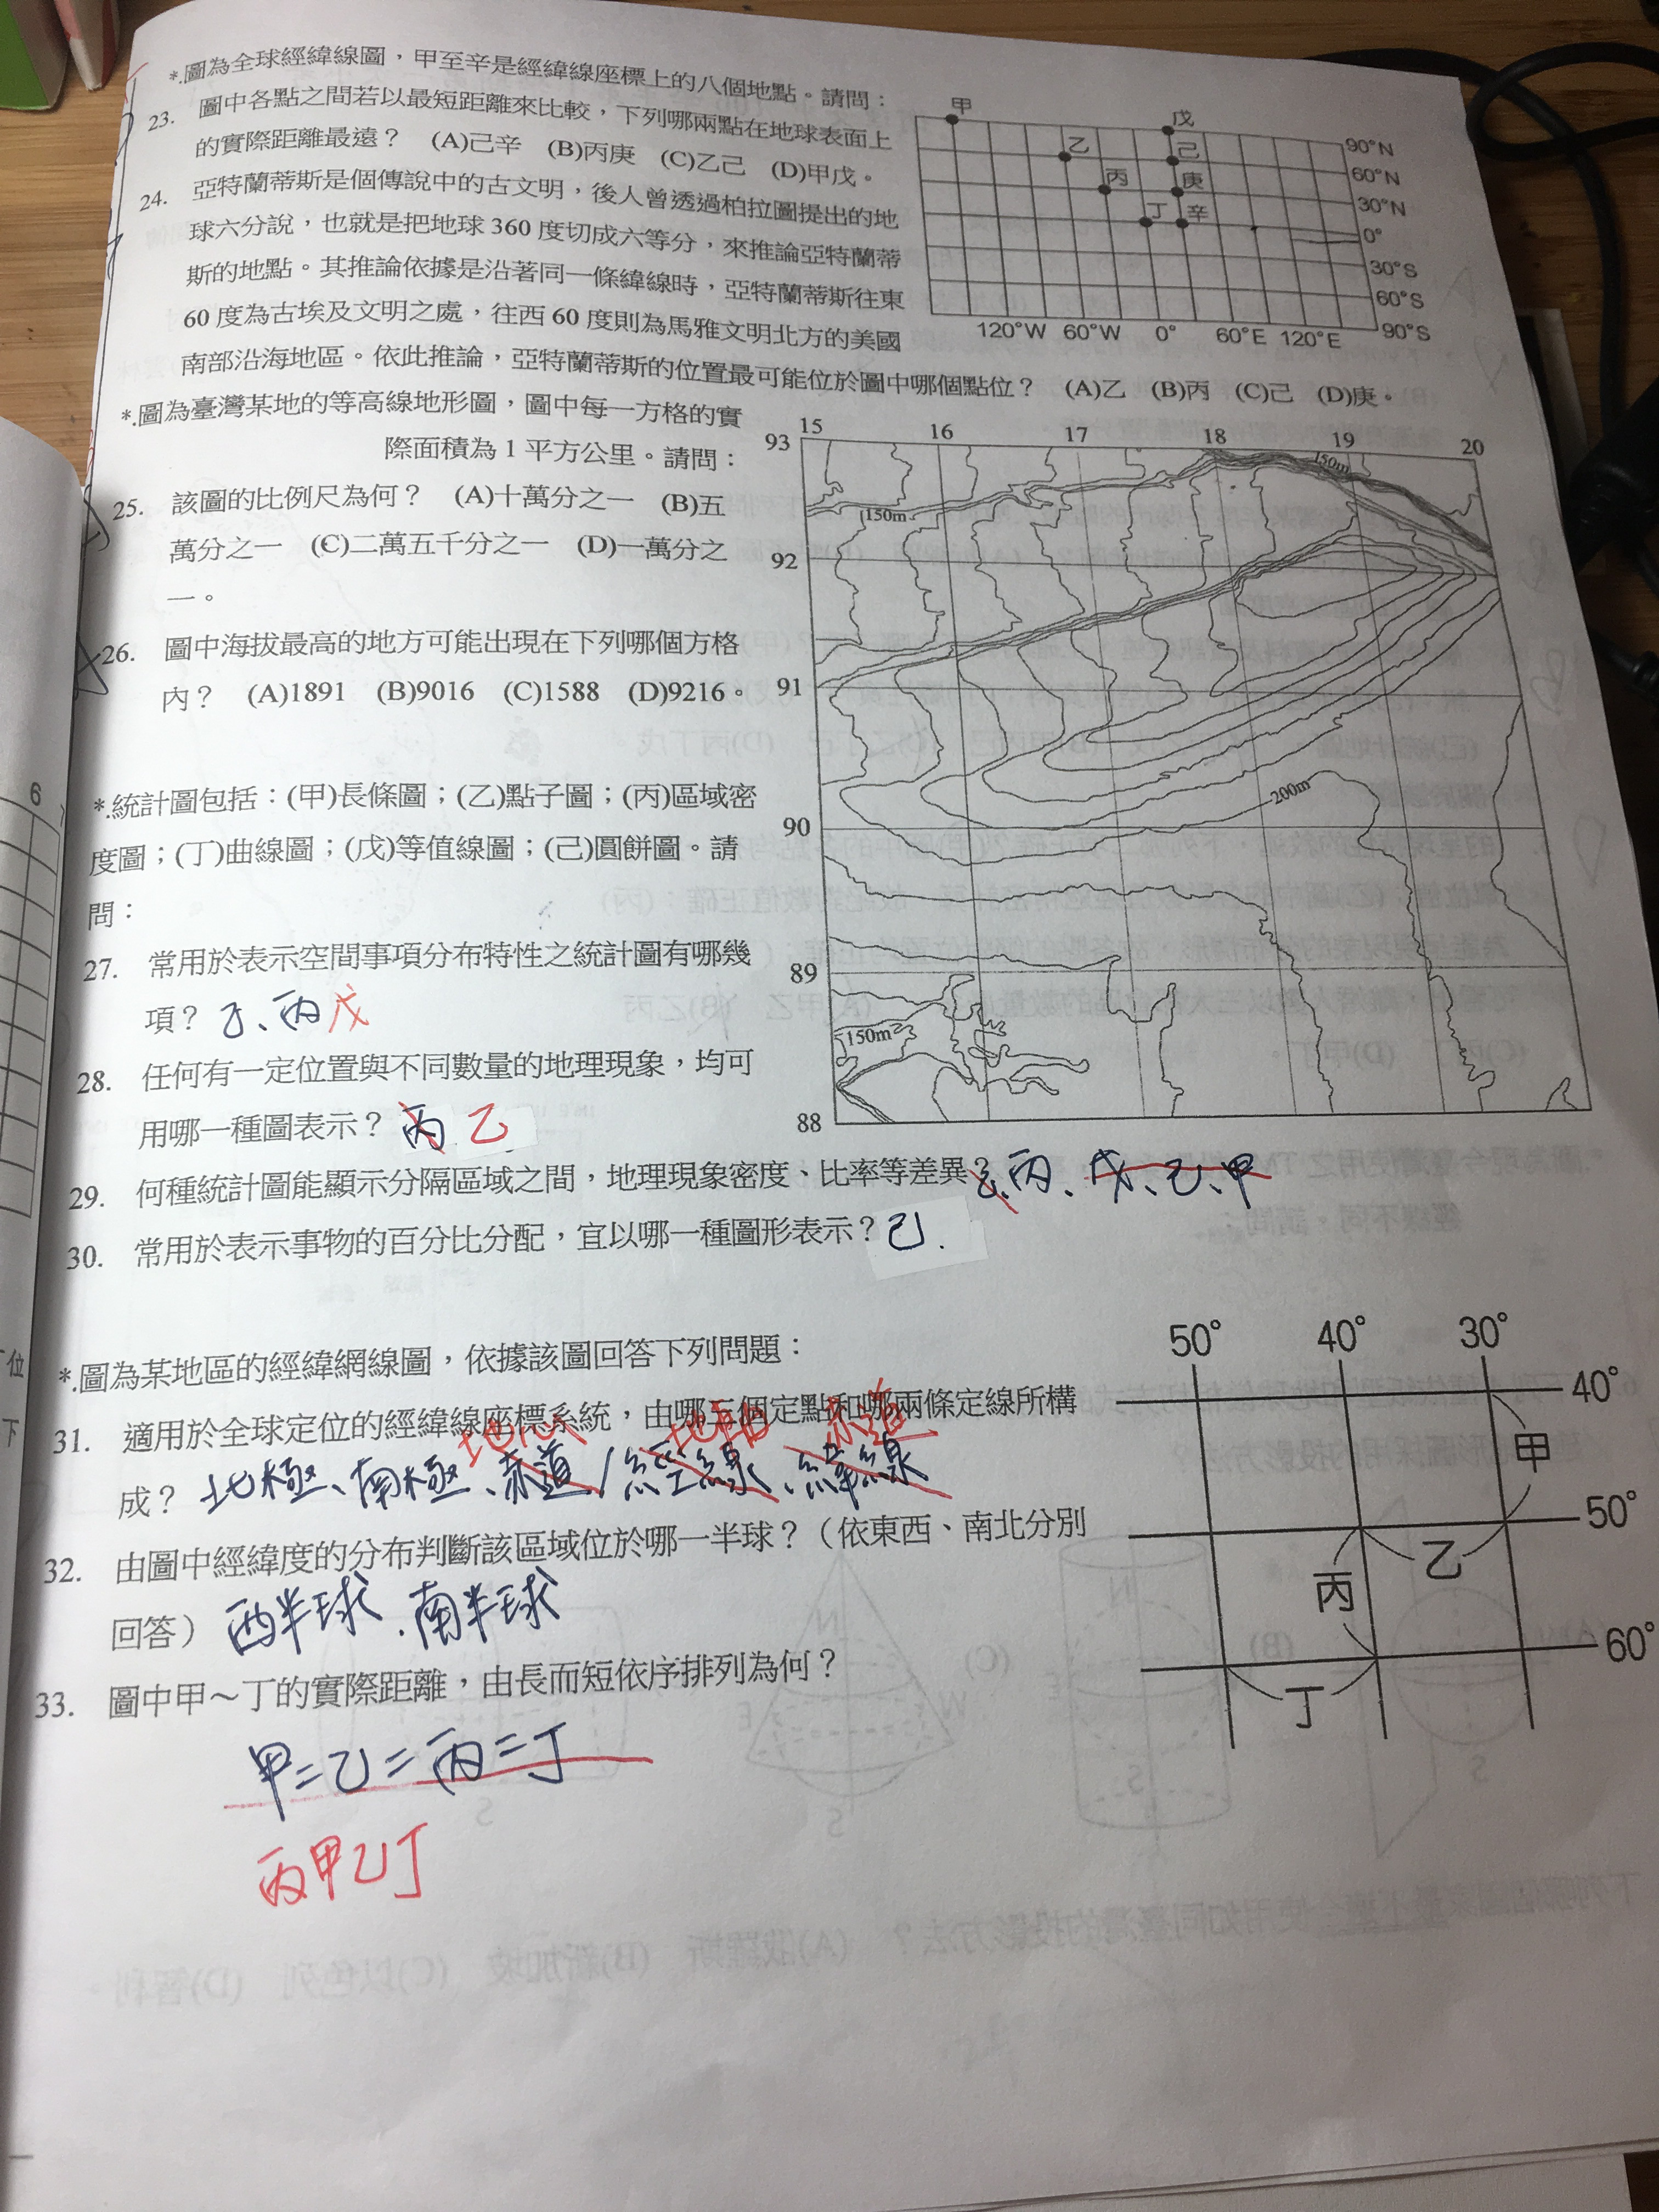 *.圖為全球經緯線圖，甲至辛是經緯線座標上的八個地點。請問：
23. 圖中各點之間若以最短距離來比較，下列哪兩點在地球表面上
的實際距離最遠？ (A)己辛 (B)丙庚 (C)乙己 (D)甲戊。
24. 亞特蘭蒂斯是個傳說中的古文明，後人曾透過柏拉圖提出的地
球六分說，也就是把地球 360 度切成六等分，來推論亞特蘭蒂
斯的地點。其推論依據是沿著同一條緯線時，亞特蘭蒂斯往東
60 度為古埃及文明之處，往西 60 度則為馬雅文明北方的美國
南部沿海地區。依此推論，亞特蘭蒂斯的位置最可能位於圖中哪個點位？ (A)乙 (B)丙 (C)己 (D)庚。
甲
戊
乙
己
丙
庚
丁
辛
90°N
60°N
30°N
0°
30°S
60°S
90°S
120°W 60°W 0° 60°E 120°E
*.圖為臺灣某地的等高線地形圖，圖中每一方格的實
際面積為 1 平方公里。請問：
25. 該圖的比例尺為何？ (A)十萬分之一 (B)五
萬分之一 (C)二萬五千分之一 (D)一萬分之
一。
26. 圖中海拔最高的地方可能出現在下列哪個方格
內？ (A)1891 (B)9016 (C)1588 (D)9216。
15 16 17 18 19 20
93
92
91
90
89
88
150m
150m
200m
150m
*.統計圖包括：(甲)長條圖；(乙)點子圖；(丙)區域密
度圖；(丁)曲線圖；(戊)等值線圖；(己)圓餅圖。請
問：
27. 常用於表示空間事項分布特性之統計圖有哪幾
項？ 乙、丙 戊
28. 任何有一定位置與不同數量的地理現象，均可
用哪一種圖表示？ 丙 乙
29. 何種統計圖能顯示分隔區域之間，地理現象密度、比率等差異？ 乙、丙、戊、己、甲
30. 常用於表示事物的百分比分配，宜以哪一種圖形表示？ 己.
*.圖為某地區的經緯網線圖，依據該圖回答下列問題：
31. 適用於全球定位的經緯線座標系統，由哪三個定點和哪兩條定線所構
地心 地軸 赤道
成？ 北極、南極、赤道/經線、緯線
32. 由圖中經緯度的分布判斷該區域位於哪一半球？（依東西、南北分別
回答） 西半球、南半球
33. 圖中甲～丁的實際距離，由長而短依序排列為何？
甲=乙=丙=丁
丙甲乙丁
50° 40° 30°
40°
甲
50°
乙
丙
60°
丁
6
位
下